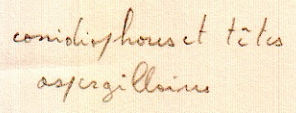 conidiophores et têtes
aspergillaires